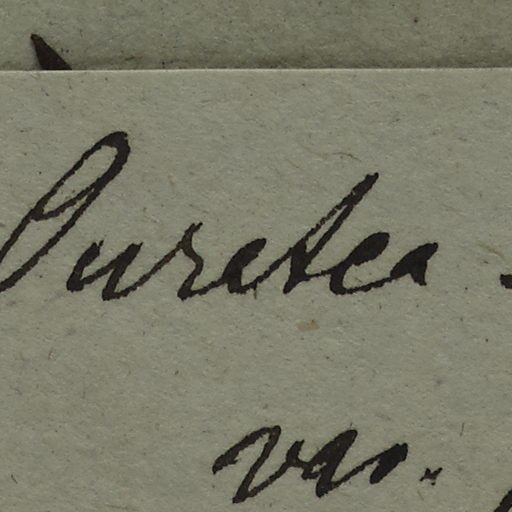 Ouratea
var.